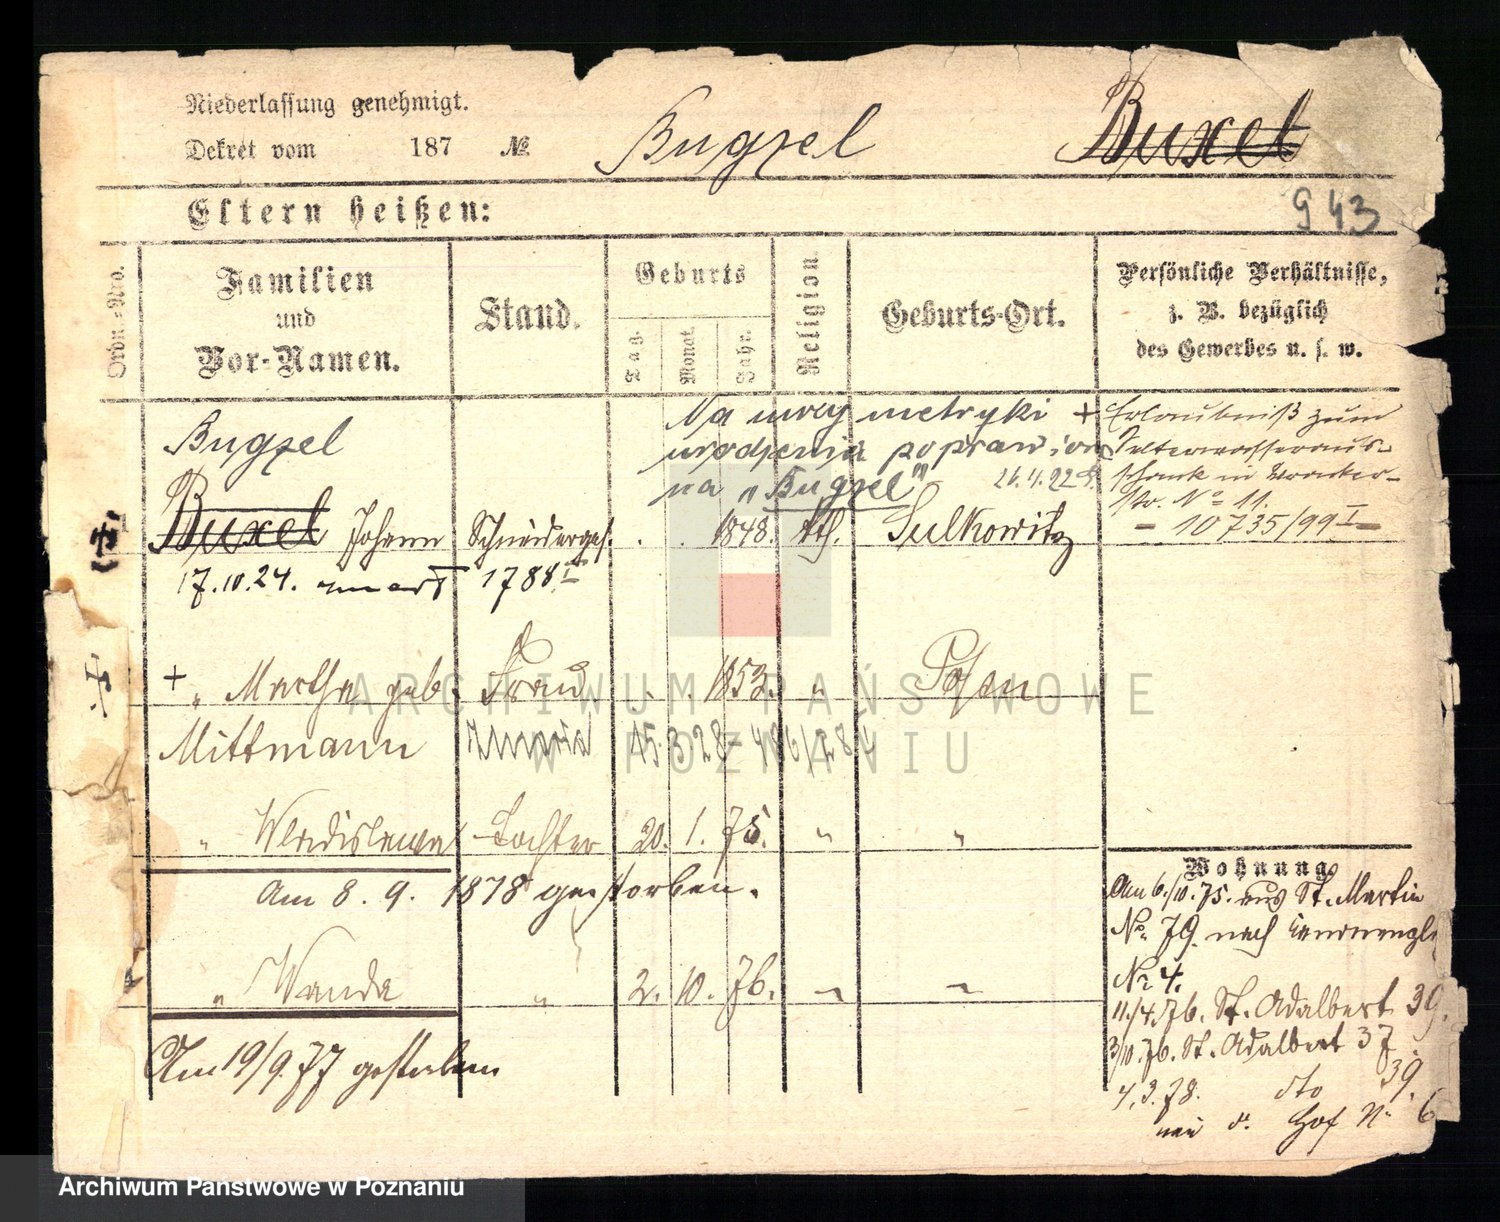 Niederlassung genehmigt.
Dekret vom 187 №
Bugzel Buxel
943
Eltern heißen:
Ordn.-Nro.
Familien
und
Vor-Namen.
Stand.
Geburts
Tag.
Monat.
Jahr.
Religion.
Geburts-Ort.
Persönliche Verhältnisse,
z. B. bezüglich
des Gewerbes u. s. w.
Bugzel
Na mocy metryki
urodzenia poprawiono
na „Bugzel"
21.4.22
+ Erlaubniß zum
Selterwasseraus-
schank in
Str. No 11.
- 10735/99 I -
Buxel Johann Schneiderges. . . 1848. kth. Sulkowitz
17.10.24. zmarł 1788 I
+ „ Martha geb. Frau . . 1853. „ Posen
Mittmann zmarła 15.3.28 - 486/284
„ Wladislawa Tochter 20. 1. 75. „ „
Am 8. 9. 1878 gestorben.
„ Wanda „ 2. 10. 76. „ „
Am 19/9.77 gestorben
Wohnung
Am 6./10. 75. aus St. Martin
No 79. nach
No 4.
11./4.76. St. Adalbert 39.
3/10.76. St. Adalbert 37.
4.3.78. dto 39.
Hof N. 6
ARCHIWUM PAŃSTWOWE
W POZNANIU
Archiwum Państwowe w Poznaniu